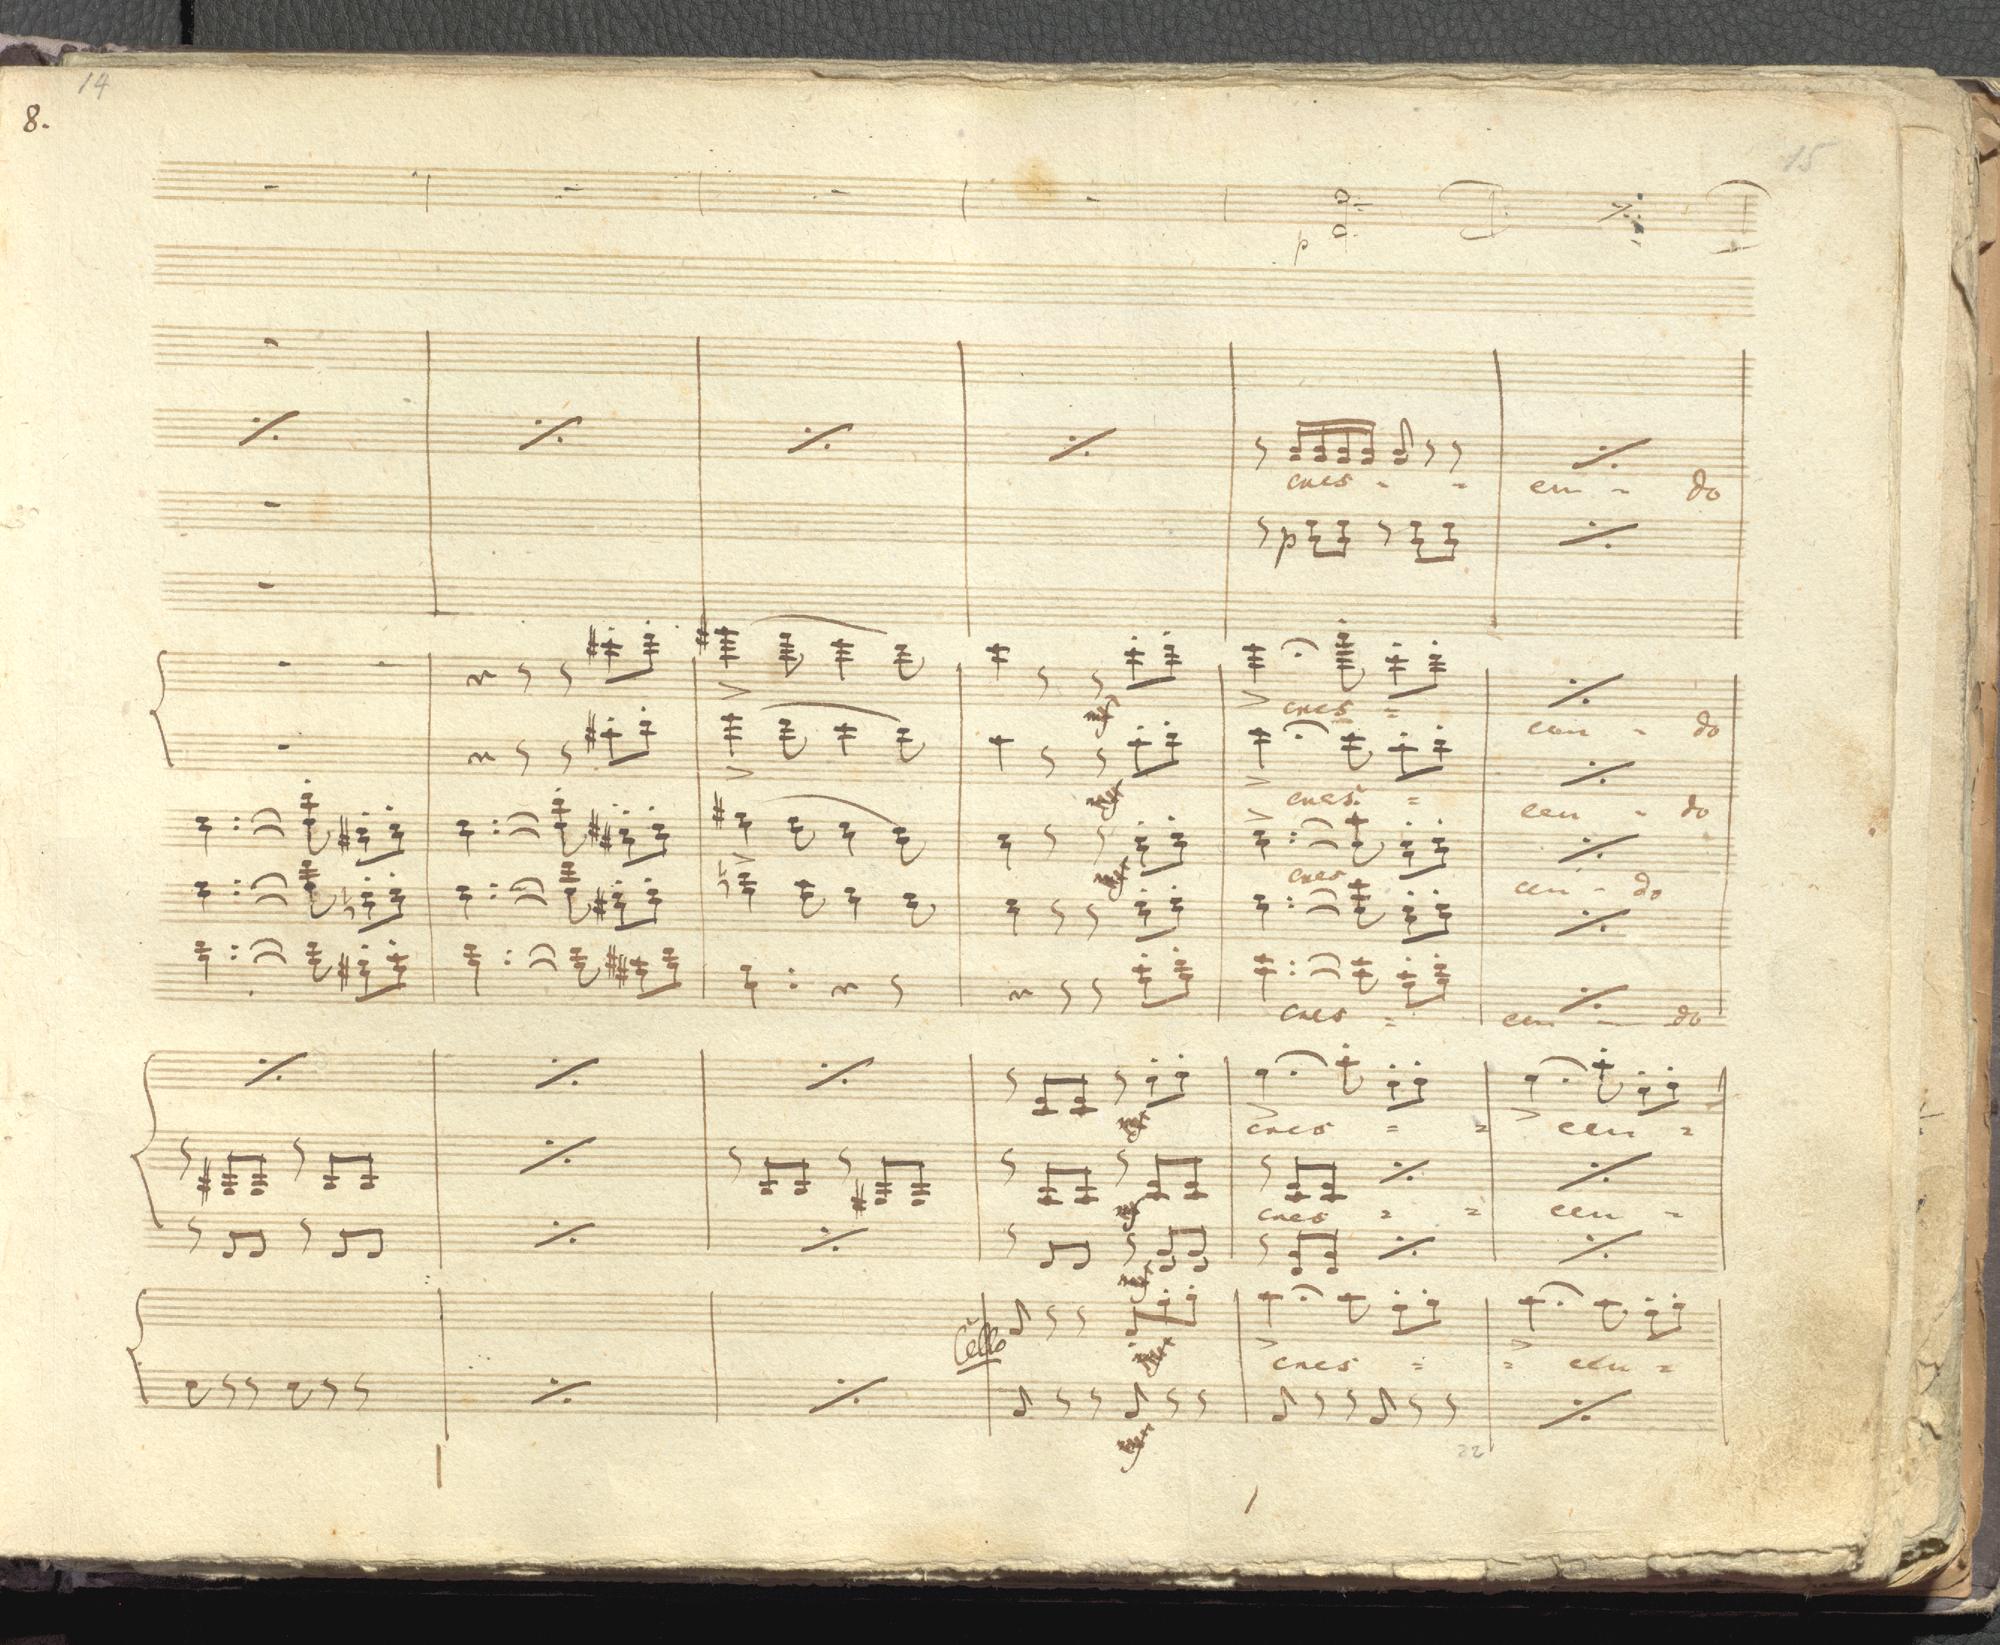 14
8.
15
p
cres - - cen - do
p
cres = cen - do
mf
cres. = cen - do
mf
cres cen - do
mf
cres = cen - do
cres = = cen =
mf
cres = = cen =
mf
mf
Cello
cres = = cen =
mf
mf
22